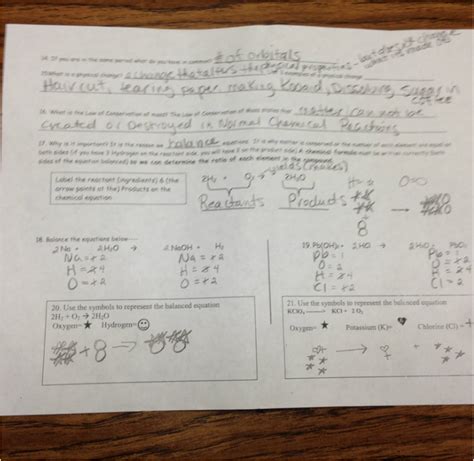 14. If you are in the same period what do you have in common? # of orbitals
15. What is a physical change? a change that alters the physical properties - but does
Examples of a physical change
Hair cut, tearing paper, making Koolaid, Dissolving Sugar in
coffee
16. What is the Law of Conservation of mass? The Law of Conservation of Mass states that matter can not be
Created or Destroyed in Normal Chemical Reactions
17. Why is it important? It is the reason we balance equations. It is why matter is conserved or the number of each element are equal on
both sides (if you have 3 hydrogen on the reactant side, you will have 3 on the product side) A chemical formula must be written correctly (both
sides of the equation balanced) so we can determine the ratio of each element in the compound.
yields (makes)
Label the reactant (ingredients) & (the
arrow points at the) Products on the
chemical equation
2H₂ + O₂ → 2H₂O
Reactants Products
H= O=O
+
8
18. Balance the equations below
2 Na + 2H₂O → 2 NaOH + H₂
Na = x 2 Na = x 2
H = x 4 H = x 4
O = x 2 O = x 2
19. Pb(OH)₂ + 2HCl → 2H₂O PbCl₂
Pb = 1 Pb = 1
O = 2 O = x 2
H = x 4 H = x 4
Cl = x 2 Cl = 2
20. Use the symbols to represent the balanced equation
2H₂ + O₂ → 2H₂O
Oxygen= ★ Hydrogen= ☺
+ 8 →
21. Use the symbols to represent the balanced equation
KClO₄ → KCl + 2 O₂
Oxygen= ★ Potassium (K)= Chlorine (Cl) = +